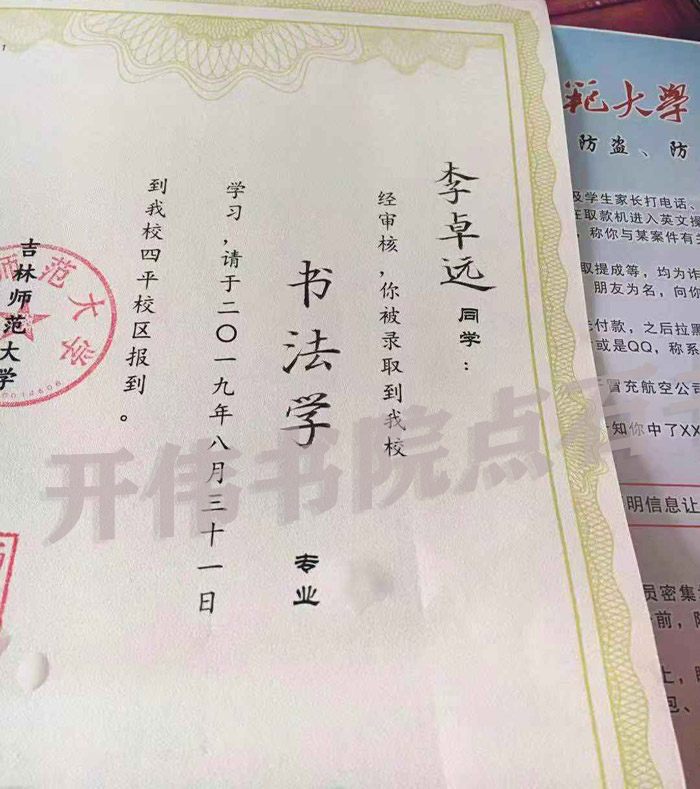 李卓远 同学：
经审核，你被录取到我校
书法学 专业
学习，请于二〇一九年八月三十一日
到我校四平校区报到。
吉林师范大学
师范大学
开伟书院点
范大学
防盗、防
及学生家长打电话、
在取款机进入英文操
，称你与某案件有关
取提成等，均为诈
朋友为名，向你
先付款，之后拉黑
或是QQ，称系
冒充航空公司
知你中了XX
明信息让
员密集
前，
上，
包、